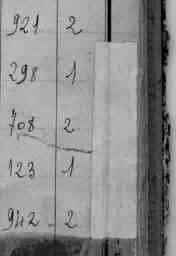 921 2
298 1
708 2
123 1
942 2